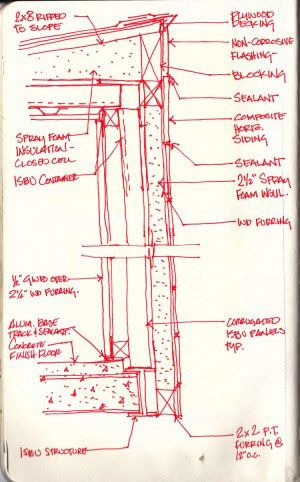 2x8 RIPPED
TO SLOPE
SPRAY FOAM
INSULATION -
CLOSED CELL
ISBU CONTAINER
1/2" GWB OVER
2 1/2" WD FURRING.
ALUM. BASE
TRACK & SEALANT.
CONCRETE
FINISH FLOOR
ISBU STRUCTURE
PLYWOOD
DECKING
NON-CORROSIVE
FLASHING
BLOCKING
SEALANT
COMPOSITE
HORIZ.
SIDING
SEALANT
2 1/2" SPRAY
FOAM INSUL.
WD FURRING
CORRUGATED
ISBU PANELS
TYP.
2x2 P.T.
FURRING @
12" O.C.